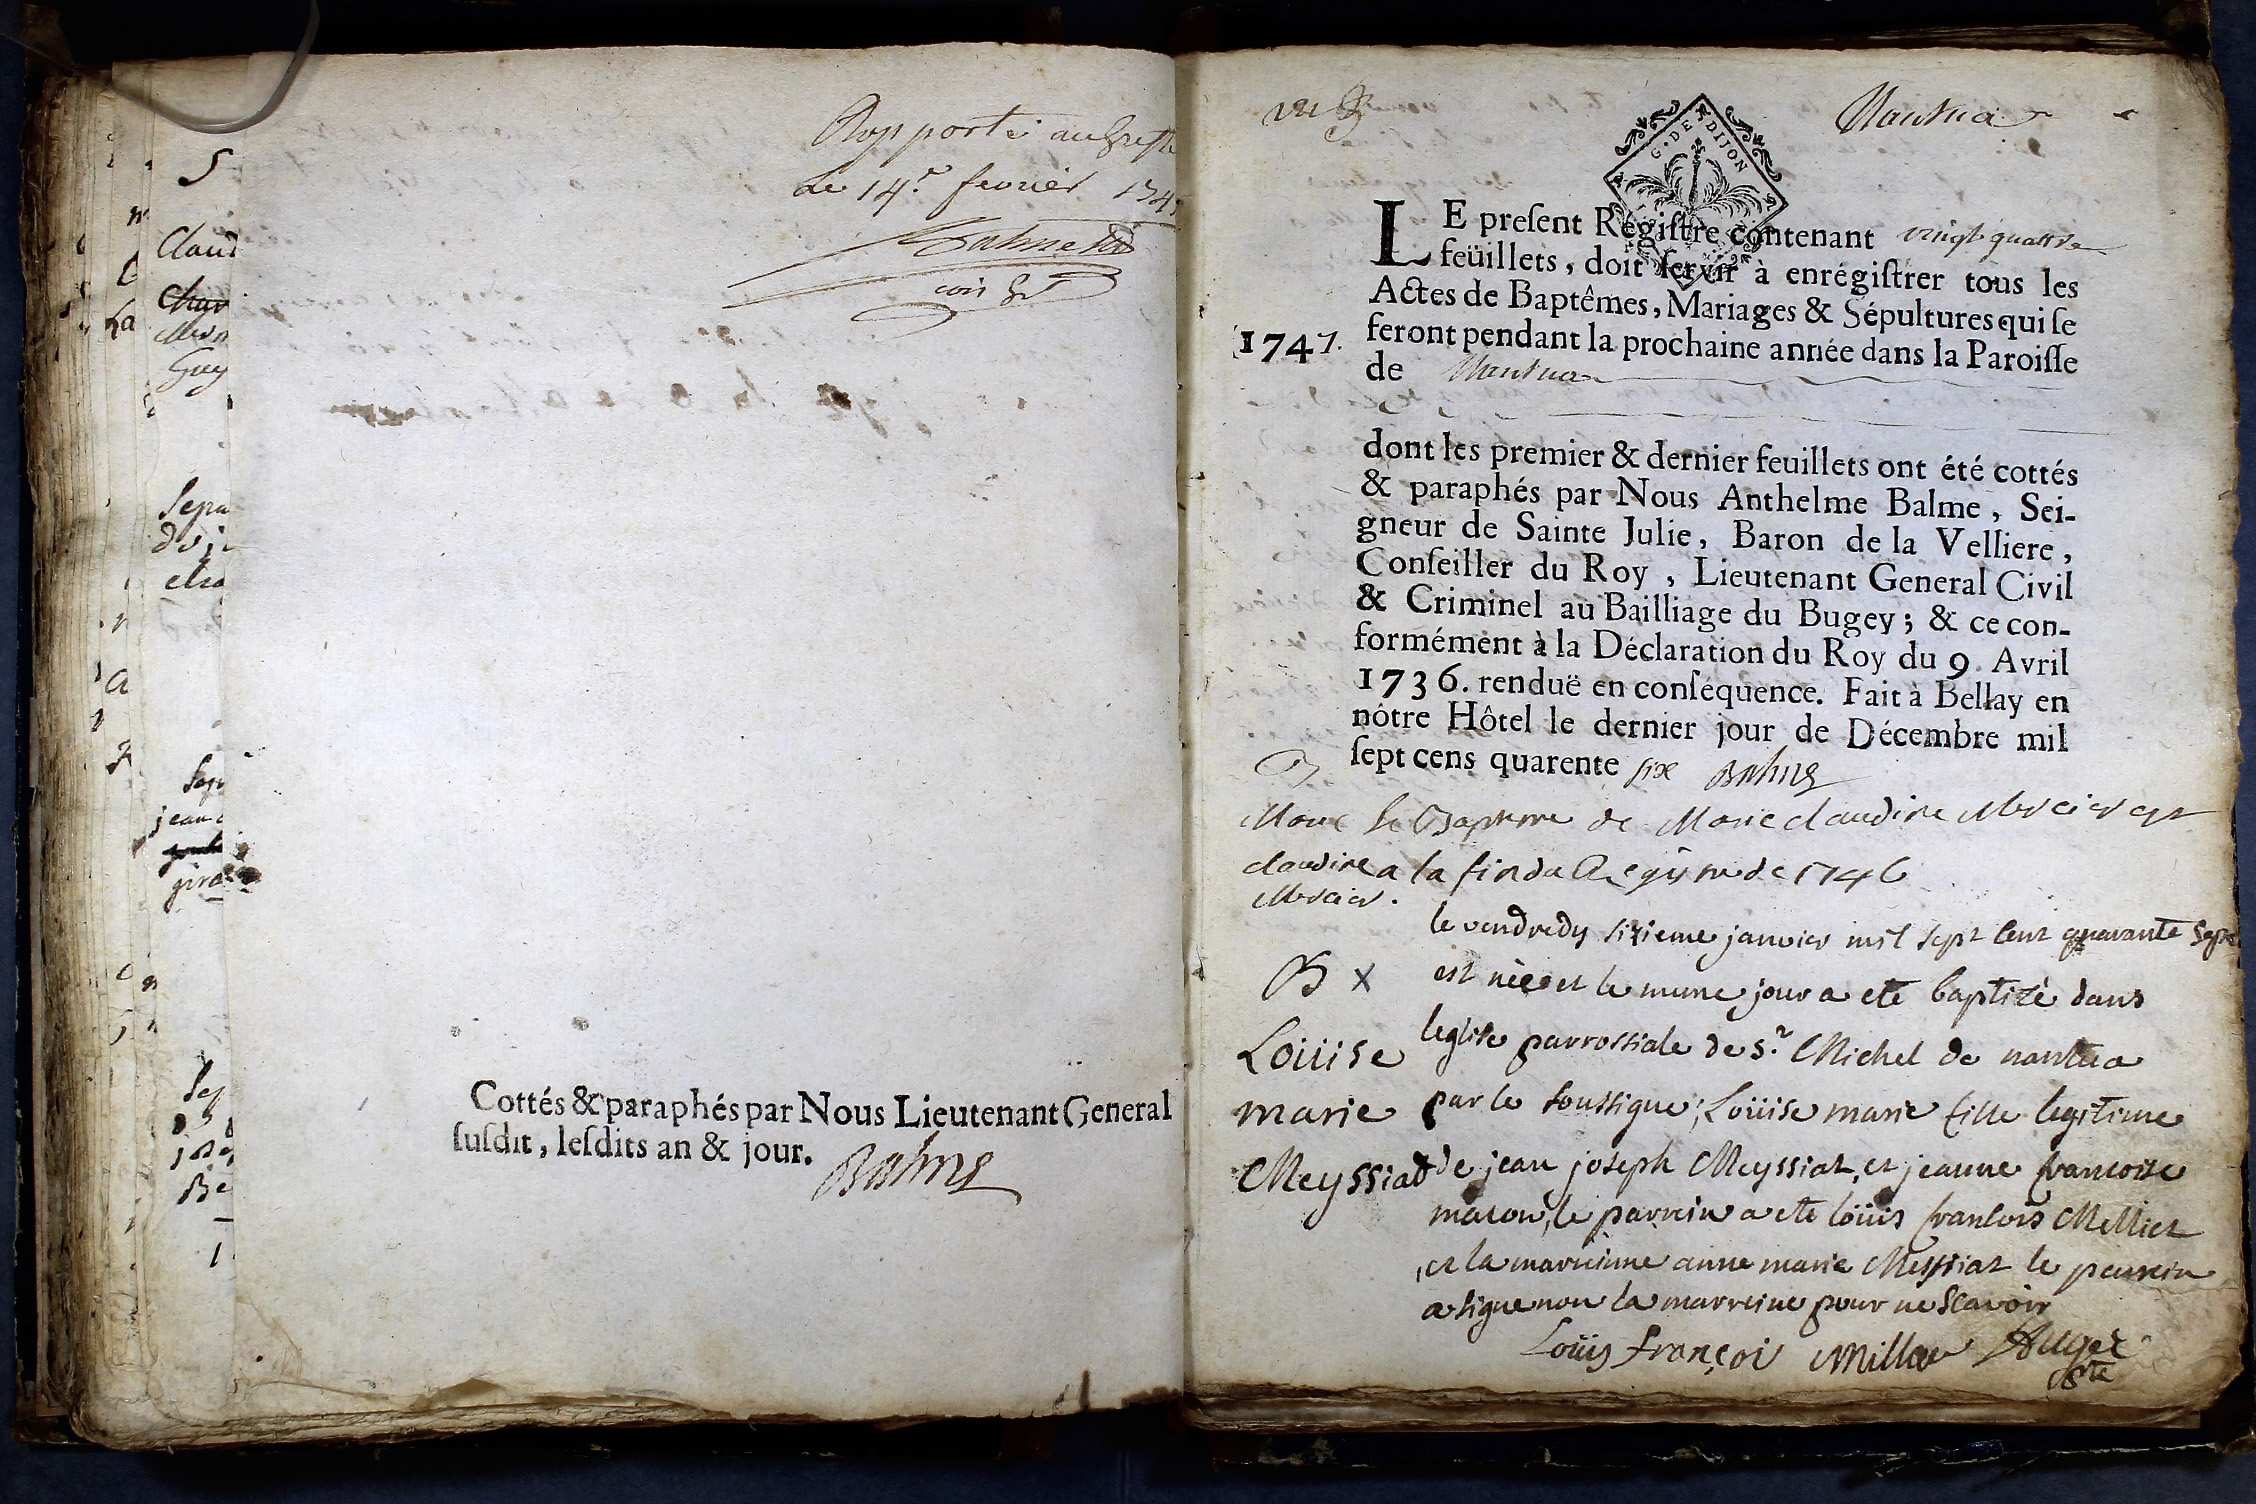 Rapporté au Greffe
Le 14.e fevrier 174
Cottés & paraphés par Nous Lieutenant General
ſuſdit, leſdits an & jour.
Balme
5
Claud
Char
Guy
La
Sepu
jean
gira
Sep
Be
Nantua
G. DE DIJON
LE preſent Régiſtre contenant vingt quattre
feüillets, doit ſervir à enrégiſtrer tous les
Actes de Baptêmes, Mariages & Sépultures qui ſe
1747. feront pendant la prochaine année dans la Paroiſſe
de Nantua
dont les premier & dernier feuillets ont été cottés
& paraphés par Nous Anthelme Balme, Sei-
gneur de Sainte Julie, Baron de la Velliere,
Conſeiller du Roy, Lieutenant General Civil
& Criminel au Bailliage du Bugey; & ce con-
formément à la Déclaration du Roy du 9. Avril
1736. renduë en conſéquence. Fait à Bellay en
nôtre Hôtel le dernier jour de Décembre mil
ſept cens quarente six Balme
B
Marie le Bapteme de Marie claudine Mercier est
claudine a la fin du Registre de 1746
Mercier.
le vendredy sixieme janvier mil sept cent quarante sept
B x est née et le meme jour a eté baptizé dans
Loüise leglise parrossiale de St. Michel de nantua
marie par le soussigné; Loüise marie fille legitime
Meyssiat de jean joseph Meyssiat, et jeanne francoise
macon, le parrein a eté loüis francois Melliet
et la marreinne anne marie Messiat le parrein
a signe non la marreine pour ne scavoir
Loüis françoi Millet Auger